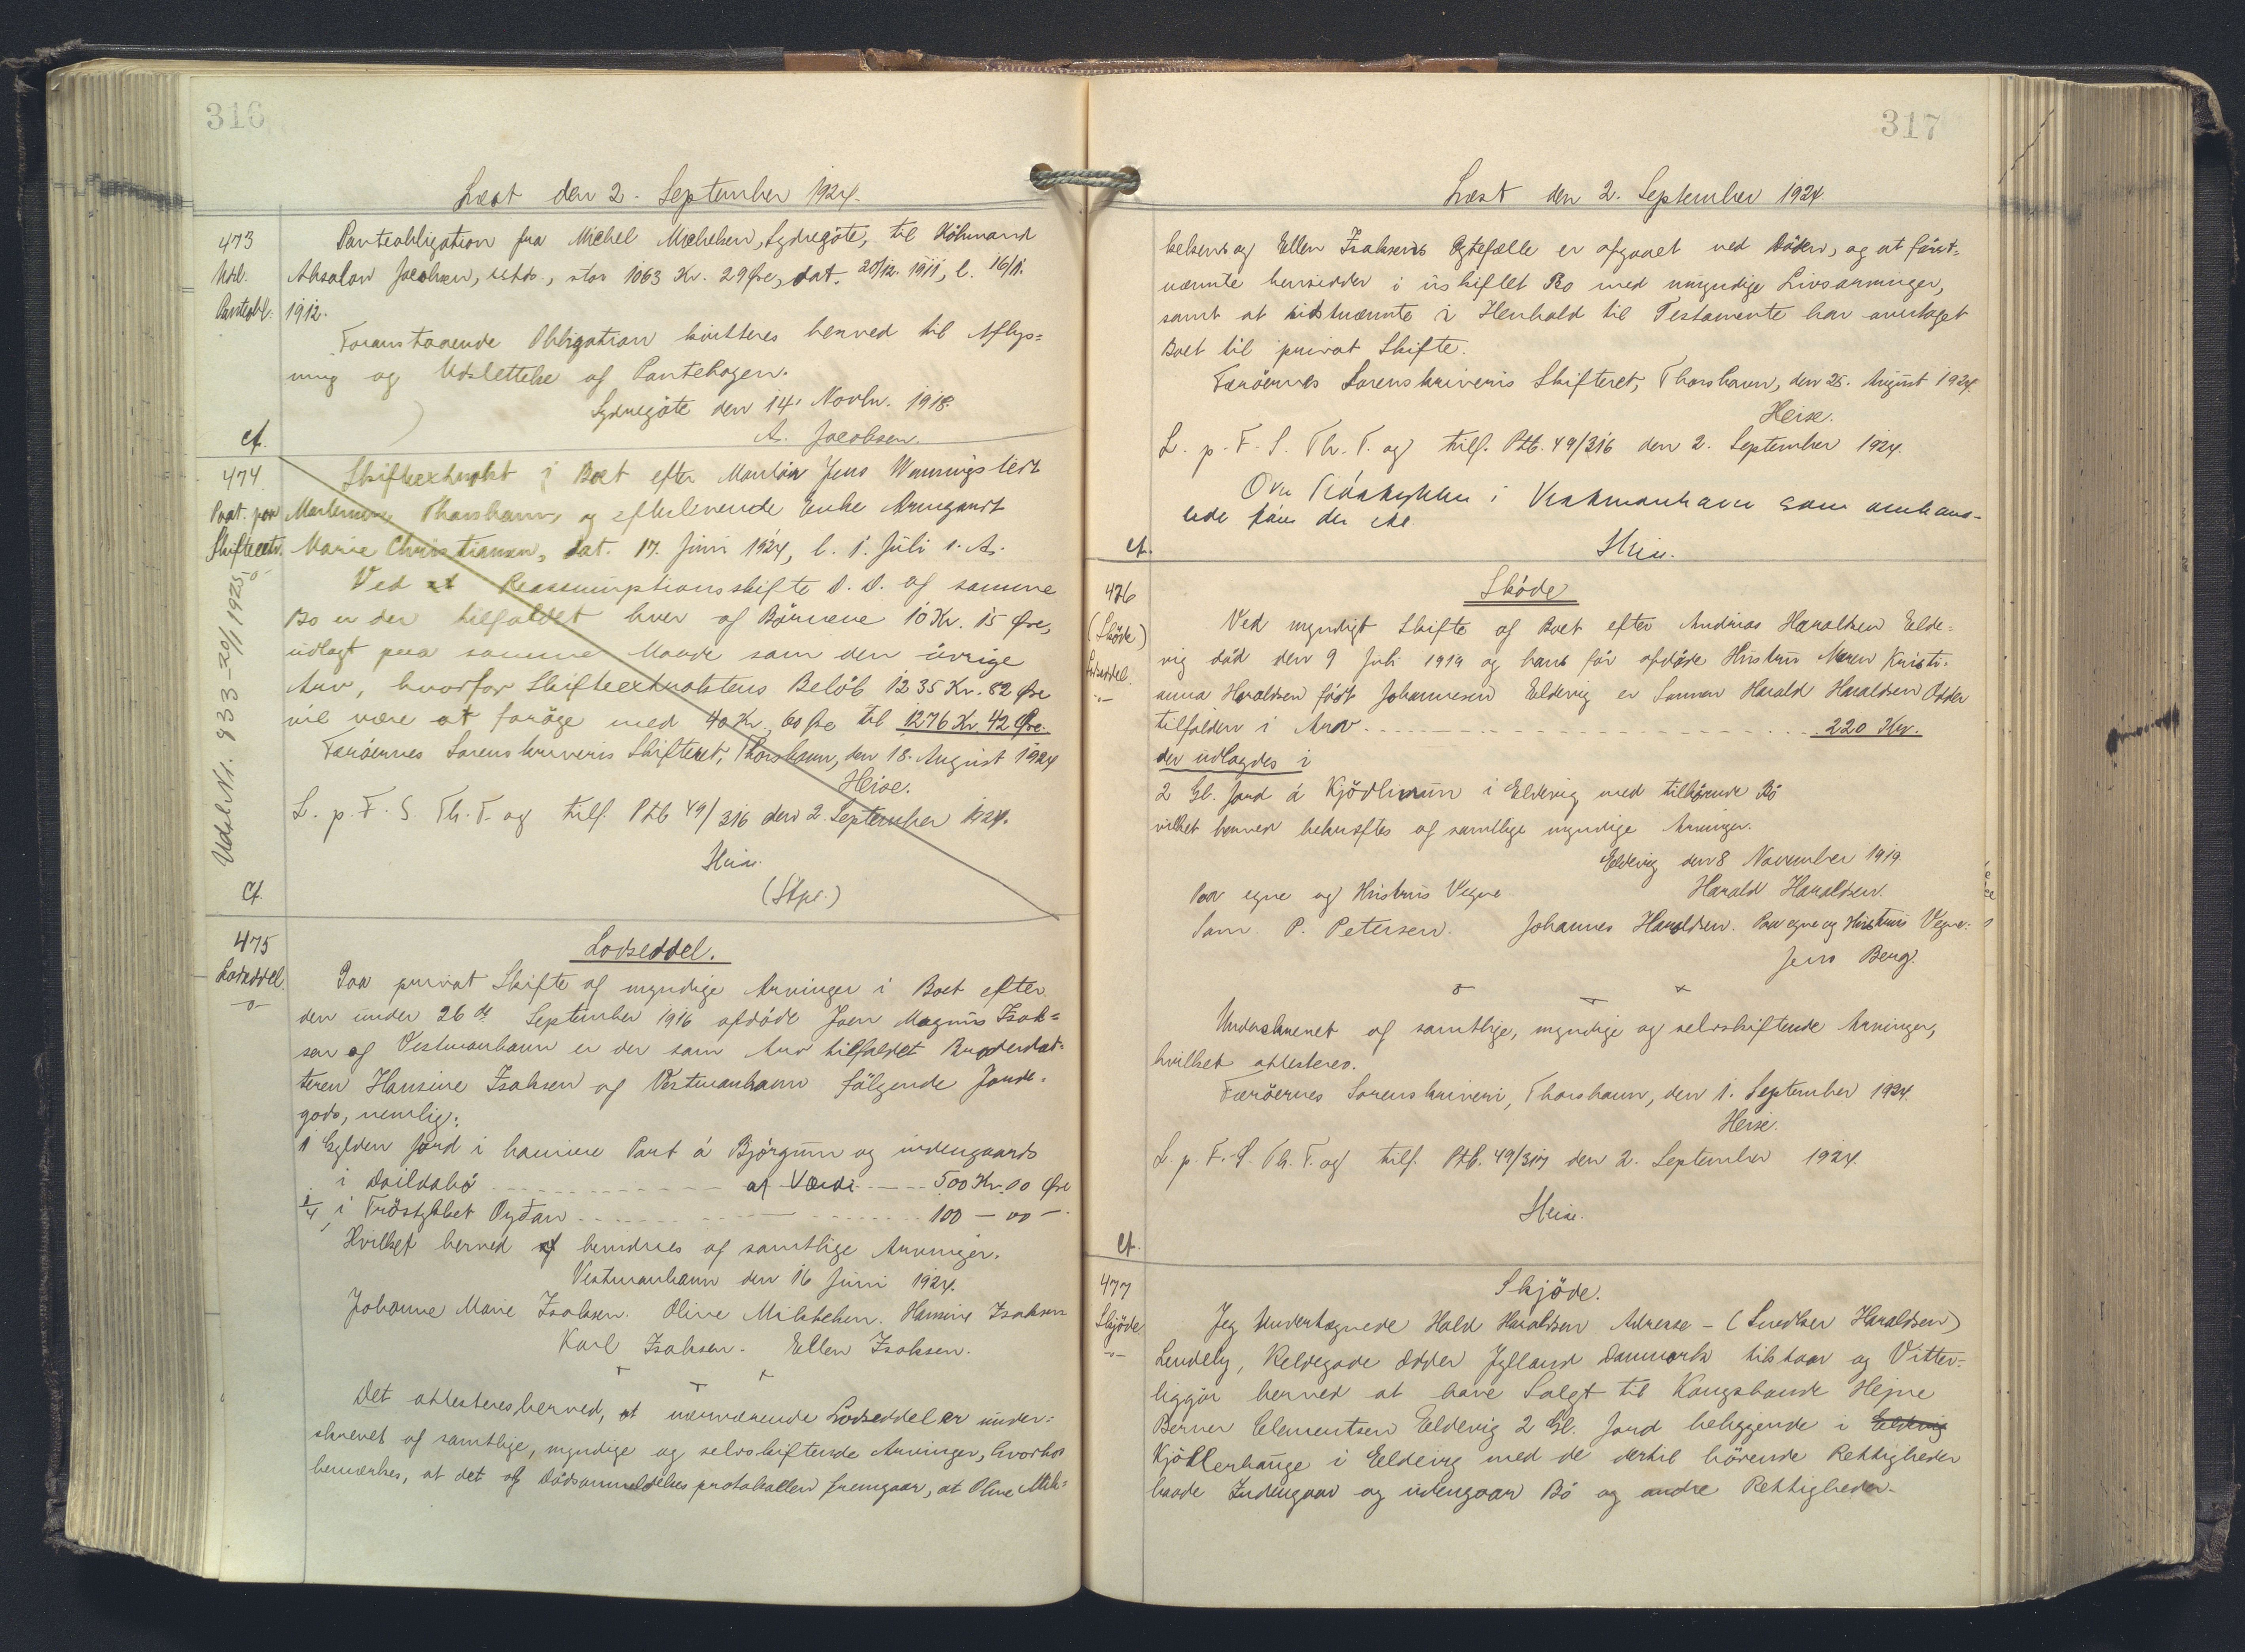 316
Læst den 2. September 1924.
473
Udsl.
Panteobl.
Panteobligation fra Michel Michelsen, Sydregöte, til Köbmand
Absalon Jacobsen, sstds., stor 1063 Kr. 29 Øre, dat. 20/12. 1911, l. 16/1.
1912.
Foranstaaende Obligation kvitteres herved til Aflys=
ning og Udslettelse af Pantebogen.
Sydregöte den 14. Novbr. 1918.
A. Jacobsen
cf.
474
Paat. paa
Skifteextr.
Udsl. Nr. 933 - 20/1 1925
Skifteextrakt i Boet efter Jens Wenningstedt
Mortensen Thorshavn, og efterlevende Enke Armgardt
Marie Christiansen, dat. 17. Juni 1924, l. 1. Juli s. A.
Ved et Reassumptionsskifte D. D. af samme
Bo er der tilfaldet hver af Börnene 10 Kr. 15 Øre,
udlagt paa samme Maade som den övrige
Arv, hvorfor Skifteextraktens Belöb 1235 Kr. 82 Øre
vil være at foröge med 40 Kr. 60 Øre til 1276 Kr. 42 Øre.
Færöernes Sorenskriveris Skifteret, Thorshavn, den 18. August 1924
Heise.
L. p. F. S. Th. T. og tilf. Ptb 49/316 den 2. September 1924.
Heise.
(Stpr.)
cf.
475
Lodseddel.
Lodseddel.
Paa privat Skifte af myndige Arvinger i Boet efter
den under 26 de September 1916 afdöde Joen Magnus Isak=
sen af Vestmanhavn er der som Arv tilfaldet Broderdat=
teren Hansine Isaksen af Vestmanhavn fölgende Jorde=
gods, nemlig:
1 Gylden Jord i hannere Part á Björgum og indengaards
i Doildabö af Værdi 500 Kr. 00 Øre
1/4 i Tröstykket Oydan 100 - 00 -
Hvilket herved af hendrues af samtlige Arvinger.
Vestmanhavn den 16 Juni 1924.
Johanne Marie Isaksen. Olive Mikkelsen. Hansine Isaksen
Karl Isaksen. Ellen Isaksen.
Det attesteres herved, at nærværende Lodseddel er under=
skrevet af samtlige, myndige og selvskiftende Arvinger, hvorhos
bemærkes, at det af Dödsanmeldelsesprotokollen fremgaar, at Olive Mik=
317
Læst den 2. September 1924.
kelsens og Ellen Isaksens Ægtefælle er afgaaet ved Döden, og at först=
nævnte hensidder i uskiftet Bo med umyndige Livsarvinger,
samt at sidstnævnte i Henhold til Testamente har overtaget
Boet til privat Skifte.
Færöernes Sorenskriveris Skifteret, Thorshavn, den 25. August 1924.
Heise.
L. p. F. S. Th. T. og tilf. Ptb. 49/316 den 2. September 1924.
Ovn Tröstykker i Vestmanhavn som omhand=
lede der
Heise.
cf.
476
(Sköde)
Lodseddel.
Sköde
Ved myndigt Skifte af Boet efter Andrias Haraldsen Elde=
vig död den 9 Juli 1919 og hans för afdöde Hustru Maren Kristi=
anna Haraldsen födt Johannesen Eldevig er Sönnen Harald Haraldsen Odder
tilfalden i Arv 220 Kr.
der udlagdes i
2 Gl. Jord á Kjödlmun i Eldevig med tilhörende Bö
vilket herved bekræftes af samtlige myndige Arvinger.
Eldevig den 8 November 1919.
Paa egne og Hustrus Vegne Harald Haraldsen.
Sam. P. Petersen. Johannes Haraldsen. Paa egne og Hustrus Vegne:
Jens Berg.
Underskrevet af samtlige, myndige og selvskiftende Arvinger,
hvilket attesteres.
Færöernes Sorenskriveri, Thorshavn, den 1. September 1924.
Heise.
L. p. F. S. Th. T. og tilf. Ptb. 49/317 den 2. September 1924.
Heise.
cf.
477
Skjöde
Skjöde.
Jeg Undertegnede Hald Haraldsen Adresse - (Snedker Haraldsen)
Lendely, Reldegade Odder Jylland Danmark tilstaar og Vitter=
liggjör herved at have Solgt til Kongsbonde Hejne
Berner Clementsen Eldevig 2 Gl. Jord beliggende i Eldevig
Kjötlerhauge i Eldevig med de dertil hörende Rettigheder
baade Indengaar og udengaar Bö og andre Rettigheder.